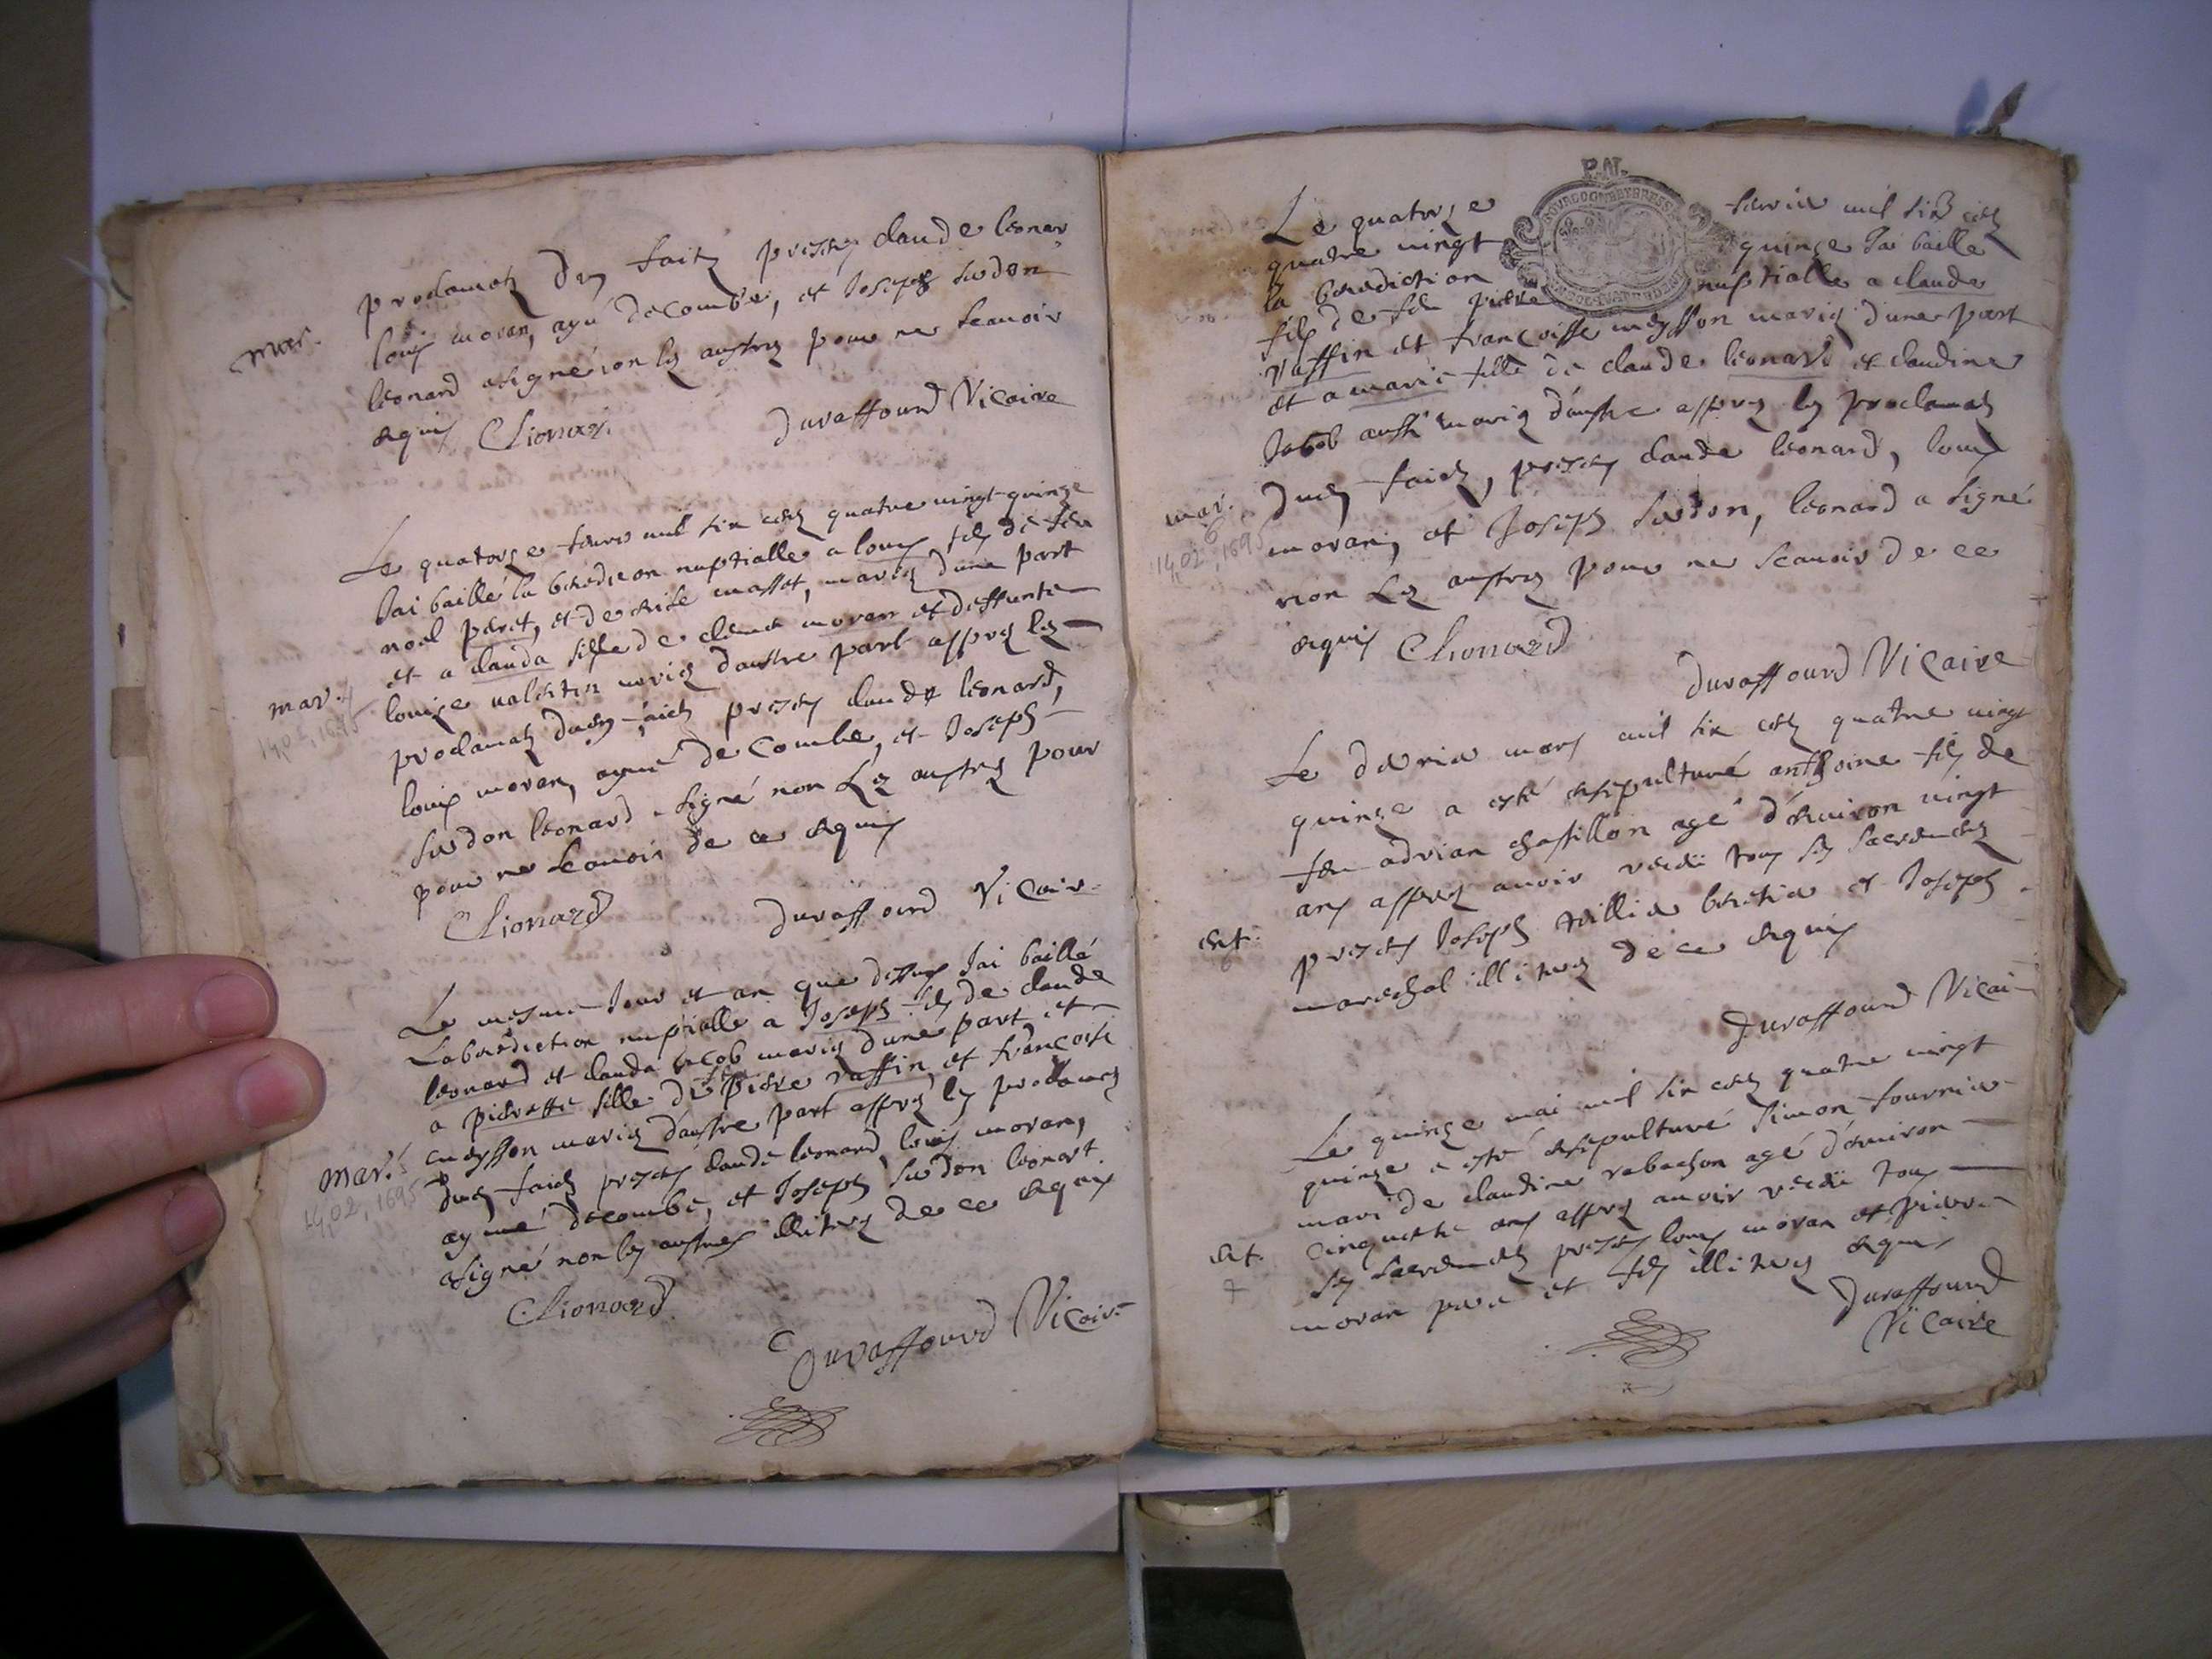 mar.
proclamatz deu faitz presentz claude leonar
louis moran, aymé decombe, et Joseph
leonard a signé non les austres pour ne scauoir
enquis CLionar.
Duraffourd Vicaire
Le quatorze feurier mil six centz quatre vingt quinze
Jai baillé la benediction nuptialle a louis filz de feu
noel peret, et de massot, mariez dune part
et a clauda fille de moran et deffunte
louise ualentin mariez daustre part appres les
mar.
14,02,1695
proclamatz deuem faictz presentz claude leonard,
louis moran, aymé decombe, et Joseph
leonard a signé non Les austres pour
pour ne scauoir de ce enquis
CLionard
Duraffourd Vicaire
Le mesme Jour et an que dessus Jai baillé
La benediction nuptialle a Joseph filz de claude
leonard et clauda Jacob mariez dune part, et
a pierrette fille de feu pierre raffin et francoise
meysson mariez daustre part appres les proclamez
mar.
14,02,1695
deuem faictz presentz claude leonard, louis moran,
aymé decombe, et Joseph leonart
a signé non les austres illiterez de ce enquis
CLionard
Duraffourd Vicaire
P.N.
BOURGOGNE BRESSE
Le quatorze feurier mil six centz
quatre uingt quinze Jai baille
la benediction nuptialle a claude
filz de feu pierre
raffin et francoisse meysson mariez dune part
et a marie fille de claude leonard et claudine
Jacob aussi mariez daustre appres les proclamatz
mar. 6
14,02,1695
deuem faictz, presentz claude leonard, louis
moran, et Joseph, leonard a signé
non Les austres pour ne scauoir de ce
enquis CLionard
Duraffourd Vicaire
Le dernier mars mil six centz quatre uingt
quinze a esté ensepulturé anthoine filz de
feu adrian chastillon agé d'enuiron uingt
ans appres auoir receü tous ses sacrementz
ent.
6
presentz Joseph et Joseph
marechal illiterez de ce enquis
Duraffourd Vicaire
Le quinze mai mil six centz quatre uingt
quinze a esté ensepulturé Simon fournier
mari de claudine rabachon agé d'enuiron
cinquante ans appres auoir receü tous
ent.
7
ses sacrementz presentz louis moran et pierre
moran pere et filz illiterez enquis
Duraffourd
Vicaire